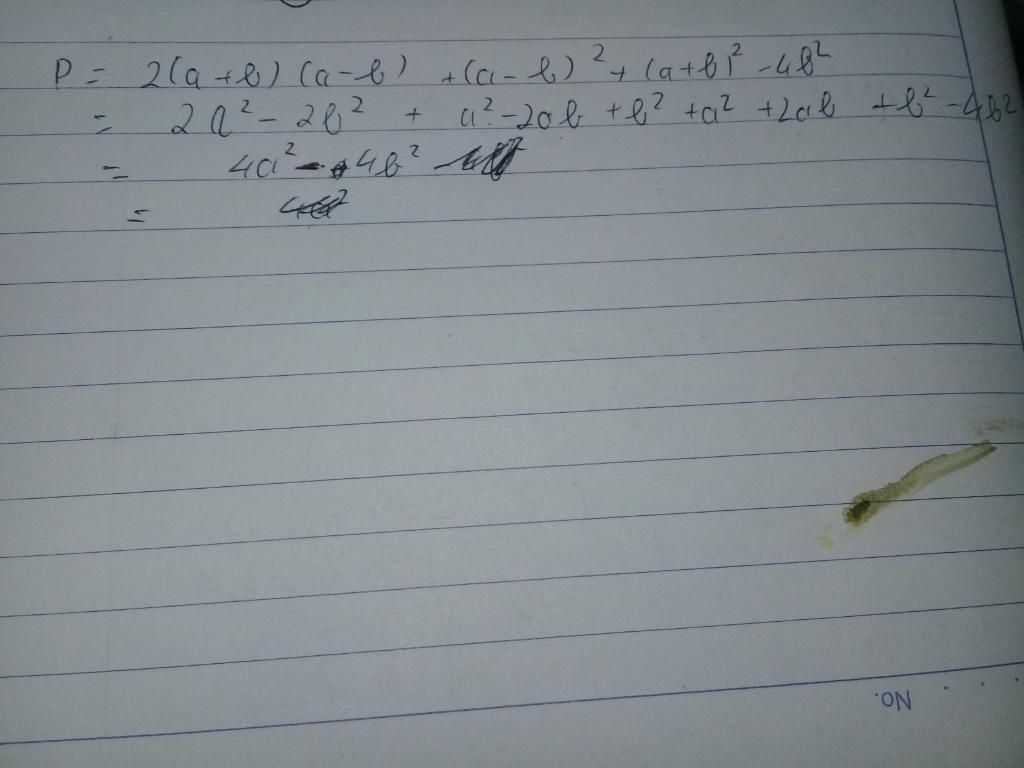 P = 2(a+b)(a-b) + (a-b)² + (a+b)² - 4b²
= 2a² - 2b² + a² - 2ab + b² + a² + 2ab + b² - 4b²
= 4a² - 4b²
=
No.